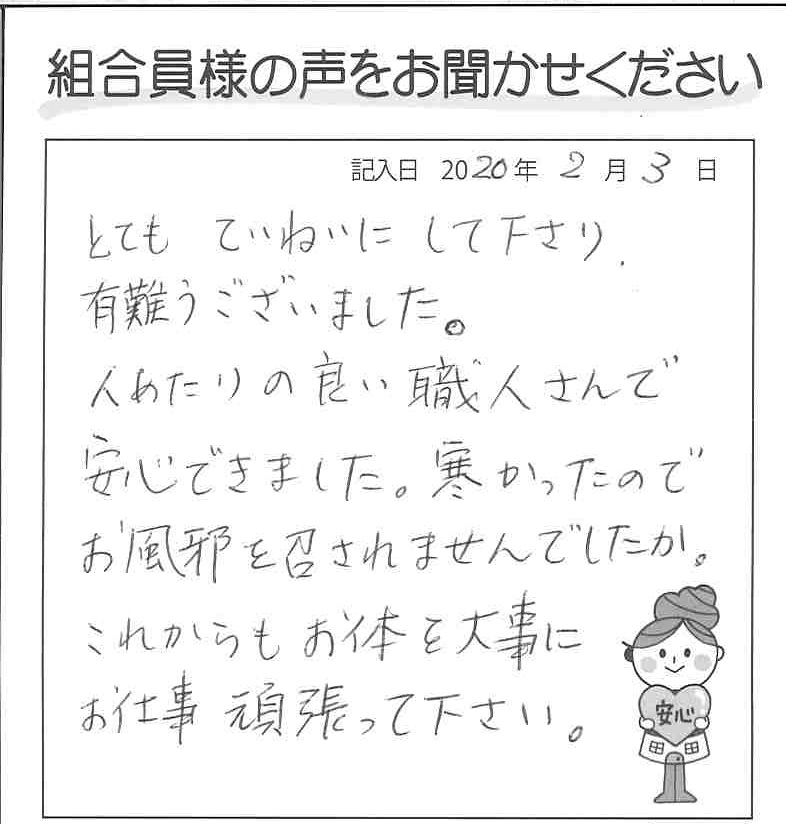 組合員様の声をお聞かせください
記入日 2020年 2月 3日
とても ていねいに して下さり、
有難うございました。
人あたりの良い職人さんで
安心できました。寒かったので
お風邪を召されませんでしたか。
これからもお体を大事に
お仕事 頑張って下さい。
安心